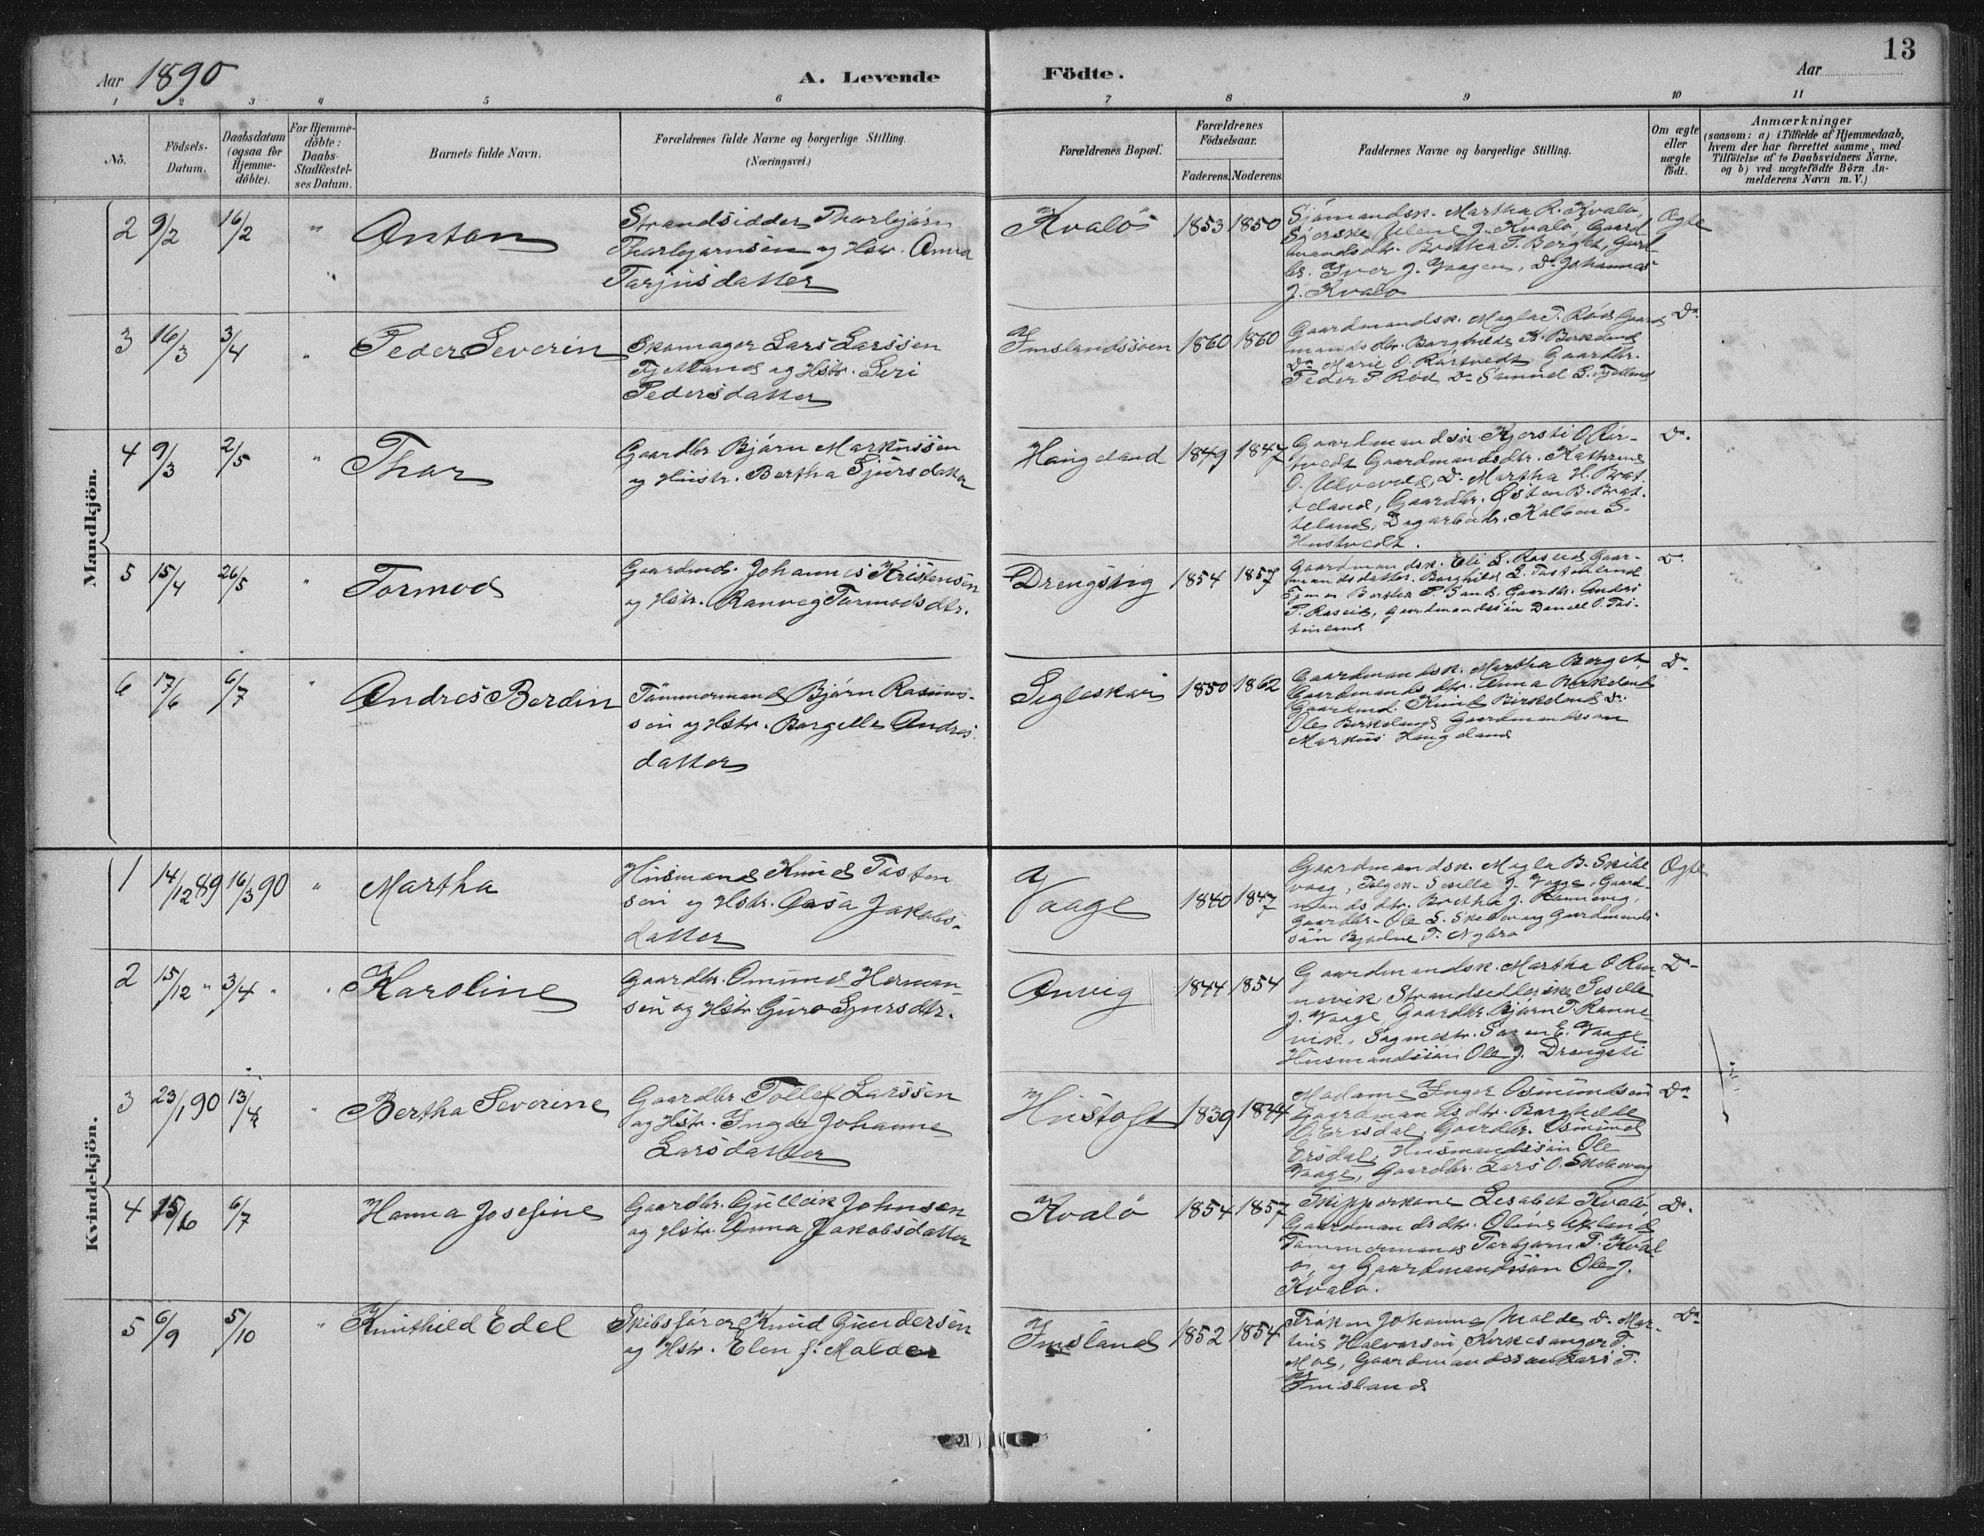 Aar 1890
A. Levende Födte.
Aar
13
1 2 3 4 5 6 7 8 9 10 11
No.
Födsels-
Datum.
Daabsdatum
(ogsaa for
Hjemme-
döbte).
For Hjemme-
döbte:
Daabs-
Stadfæstel-
ses Datum.
Barnets fulde Navn.
Forældrenes fulde Navne og borgerlige Stilling.
(Næringsvei.)
Forældrenes Bopæl.
Forældrenes
Födselsaar.
Faderens. Moderens.
Faddernes Navne og borgerlige Stilling.
Om ægte
eller
uægte
født.
Anmærkninger
(saasom: a) i Tilfælde af Hjemmedaab,
hvem der har forrettet samme, med
Tilföielse af to Daabsvidners Navne.
og b) ved uægtefödte Börn An-
melderens Navn m. V.)
Mandkjön.
2 9/2 16/2 " Anton
Strandsidder Thorbjörn
Thorbjørnsen og Hstr. Anna
Tarjusdatter
Kvalö 1853 1850
Sjömandsk. Martha R. Kvalö,
J. Kvalö, Gaard
mandsdtr. Bertha T. Berget, Gard
br. Iver J. Vaagen, Do Johannes
J. Kvalö
Ægte
3 16/3 3/4 " Peder Severin
Skomager Lars Larssen
Fjetland og Hstr. Siri
Pedersdatter
Imslandssjöen 1860 1860
Gaardmandsk. Magla T. Röd, Gaard
mandsdtr. Borghilde K. Birkeland
Do Marie O. Rørtvedt, Gaardbr.
Peder P. Röd, Do Samuel L. Fjetland
Do
4 9/3 2/5 " Thor
Gaardbr. Bjørn Markussen
og Hustr. Bertha Sjursdatter
Haugeland 1849 1847
Kjersti O. Rör-
tvedt Gaardmandsdtr. Kathrine
O. Ulvevde, Do Martha H. Brat-
teland, Gaardbr. Østen B. Brat-
teland, Dagarbeidr. Kolben S.
Hustvedt.
Do
5 15/4 26/5 " Tormod
Gaardmd. Johannes Kristensen
og Hstr. Ranveg Tormodsdtr.
Drengstig 1854 1857
Gaardmandsk. Eli L. Raseid, Gaar-
mandsdatter. Borghild L. Tastenland
Bertha P. Sand, Gaardbr. Anders
P. Raseid, Gaardmandssön Daniel O. Tas-
tenland
Do
6 17/6 6/7 " Andres Berdin
Tömmermand Bjørn Rasmus-
sen og Hstr. Borgelle Andres
datter
Segleskar 1850 1862
Gaardmandsk. Martha Berget
Gaardmandsdtr. Anna Birkeland
Gaardmd. Knud Birkeland Do
Ole Birkeland Gaardmandssøn
Markus Haugeland
Do
Kvindekjön.
1 14/12 89 16/3 90 " Martha
Husmand Knud Tosten
sen og Hstr. Aasa Jakobs-
datter
Vaage 1840 1847
Gaardmandsk. Magla B. Skibe
vaag, Sisilla J. Vaage, Gaard-
mandsdtr. Bertha J. Rannevig,
Gaardbr. Ole S. Skibevaag Gaardmands-
sön T. Nybru
Ægte
2 15/12 " 3/4 " " Karoline
Gaardbr. Omund Herman-
sen og Hstr. Guro Sjursdtr.
Anvig 1844 1854
Gaardmandsk. Martha O. Ran
nevik, Siselle
J. Vaage, Gaardbr. Bjørn T. Ranne
vik, Sagmestr. Soren E. Vaage
Husmandssön Ole J. Drengsti
Do
3 23/1 90 13/4 " Bertha Severine
Gaardbr. Tollef Larssen
og Hstr. Inger Johanne
Larsdatter
Hustoft 1839 1844
Madame Inger Osmundsen
Gaardmandsdtr. Borghilde
O. Ersdal, Gaardbr. Osmund
Ersdal, Husmandssön Ole
Vaage, Gaardbr. Lars O. Skibevaag
Do
4 15/6 6/7 Hanna Josefine
Gaardbr. Gullik Johnsen
og Hstr. Anna Jakobsdatter
Kvalö 1854 1857
Skipperkone Lisabet Kvalö,
Gaardmandsdtr. Oline Axland
Tømmermand Torbjørn T. Kval
ö, og Gaardmandssön Ole J.
Kvalö.
Do
5 6/9 5/10 " Knuthild Edel
Skibsförer Knud Gundersen
og Hstr. Elen f. Malde
Imsland 1852 1854
Frøken Johanne Malde, Do Mar-
tine Halvorsen, Kirkesanger T.
Moe, Gaardmandssøn Lars T.
Imsland
Do